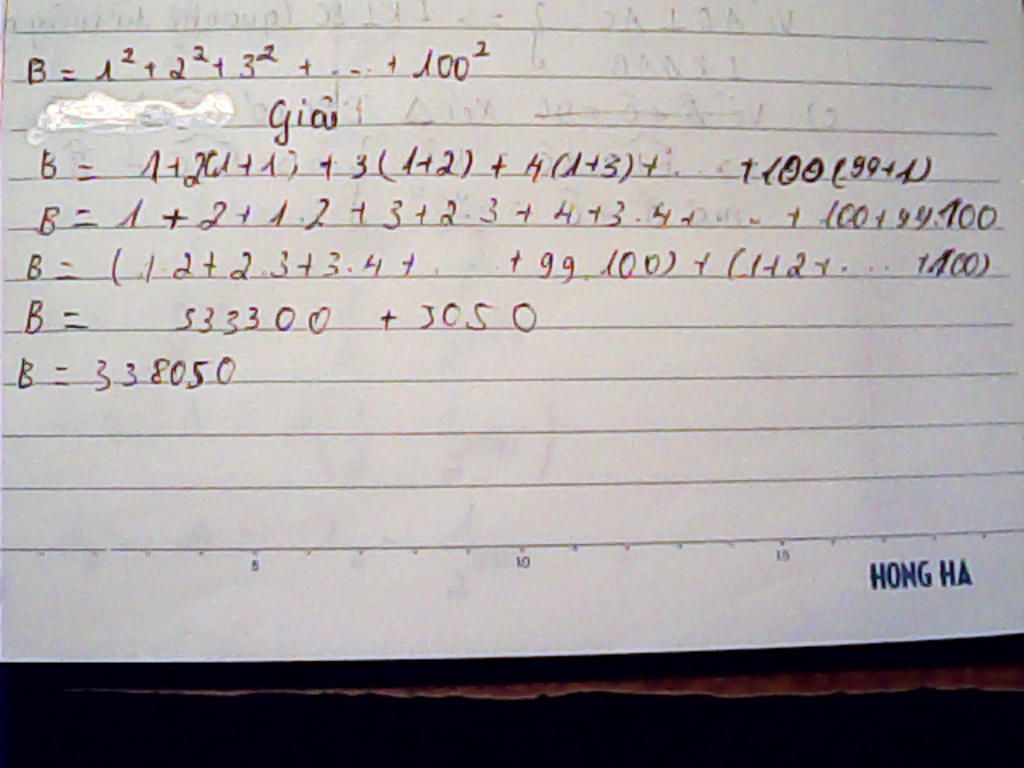 B = 1² + 2² + 3² + ... + 100²
Giải
B = 1+2(1+1) + 3(1+2) + 4(1+3)+ ... +100(99+1)
B = 1 + 2 + 1.2 + 3 + 2.3 + 4 + 3.4 + ... + 100+99.100
B = (1.2 + 2.3 + 3.4 + ... + 99.100) + (1+2+ ... +100)
B = 333300 + 5050
B = 338050
5 10 15
HONG HA